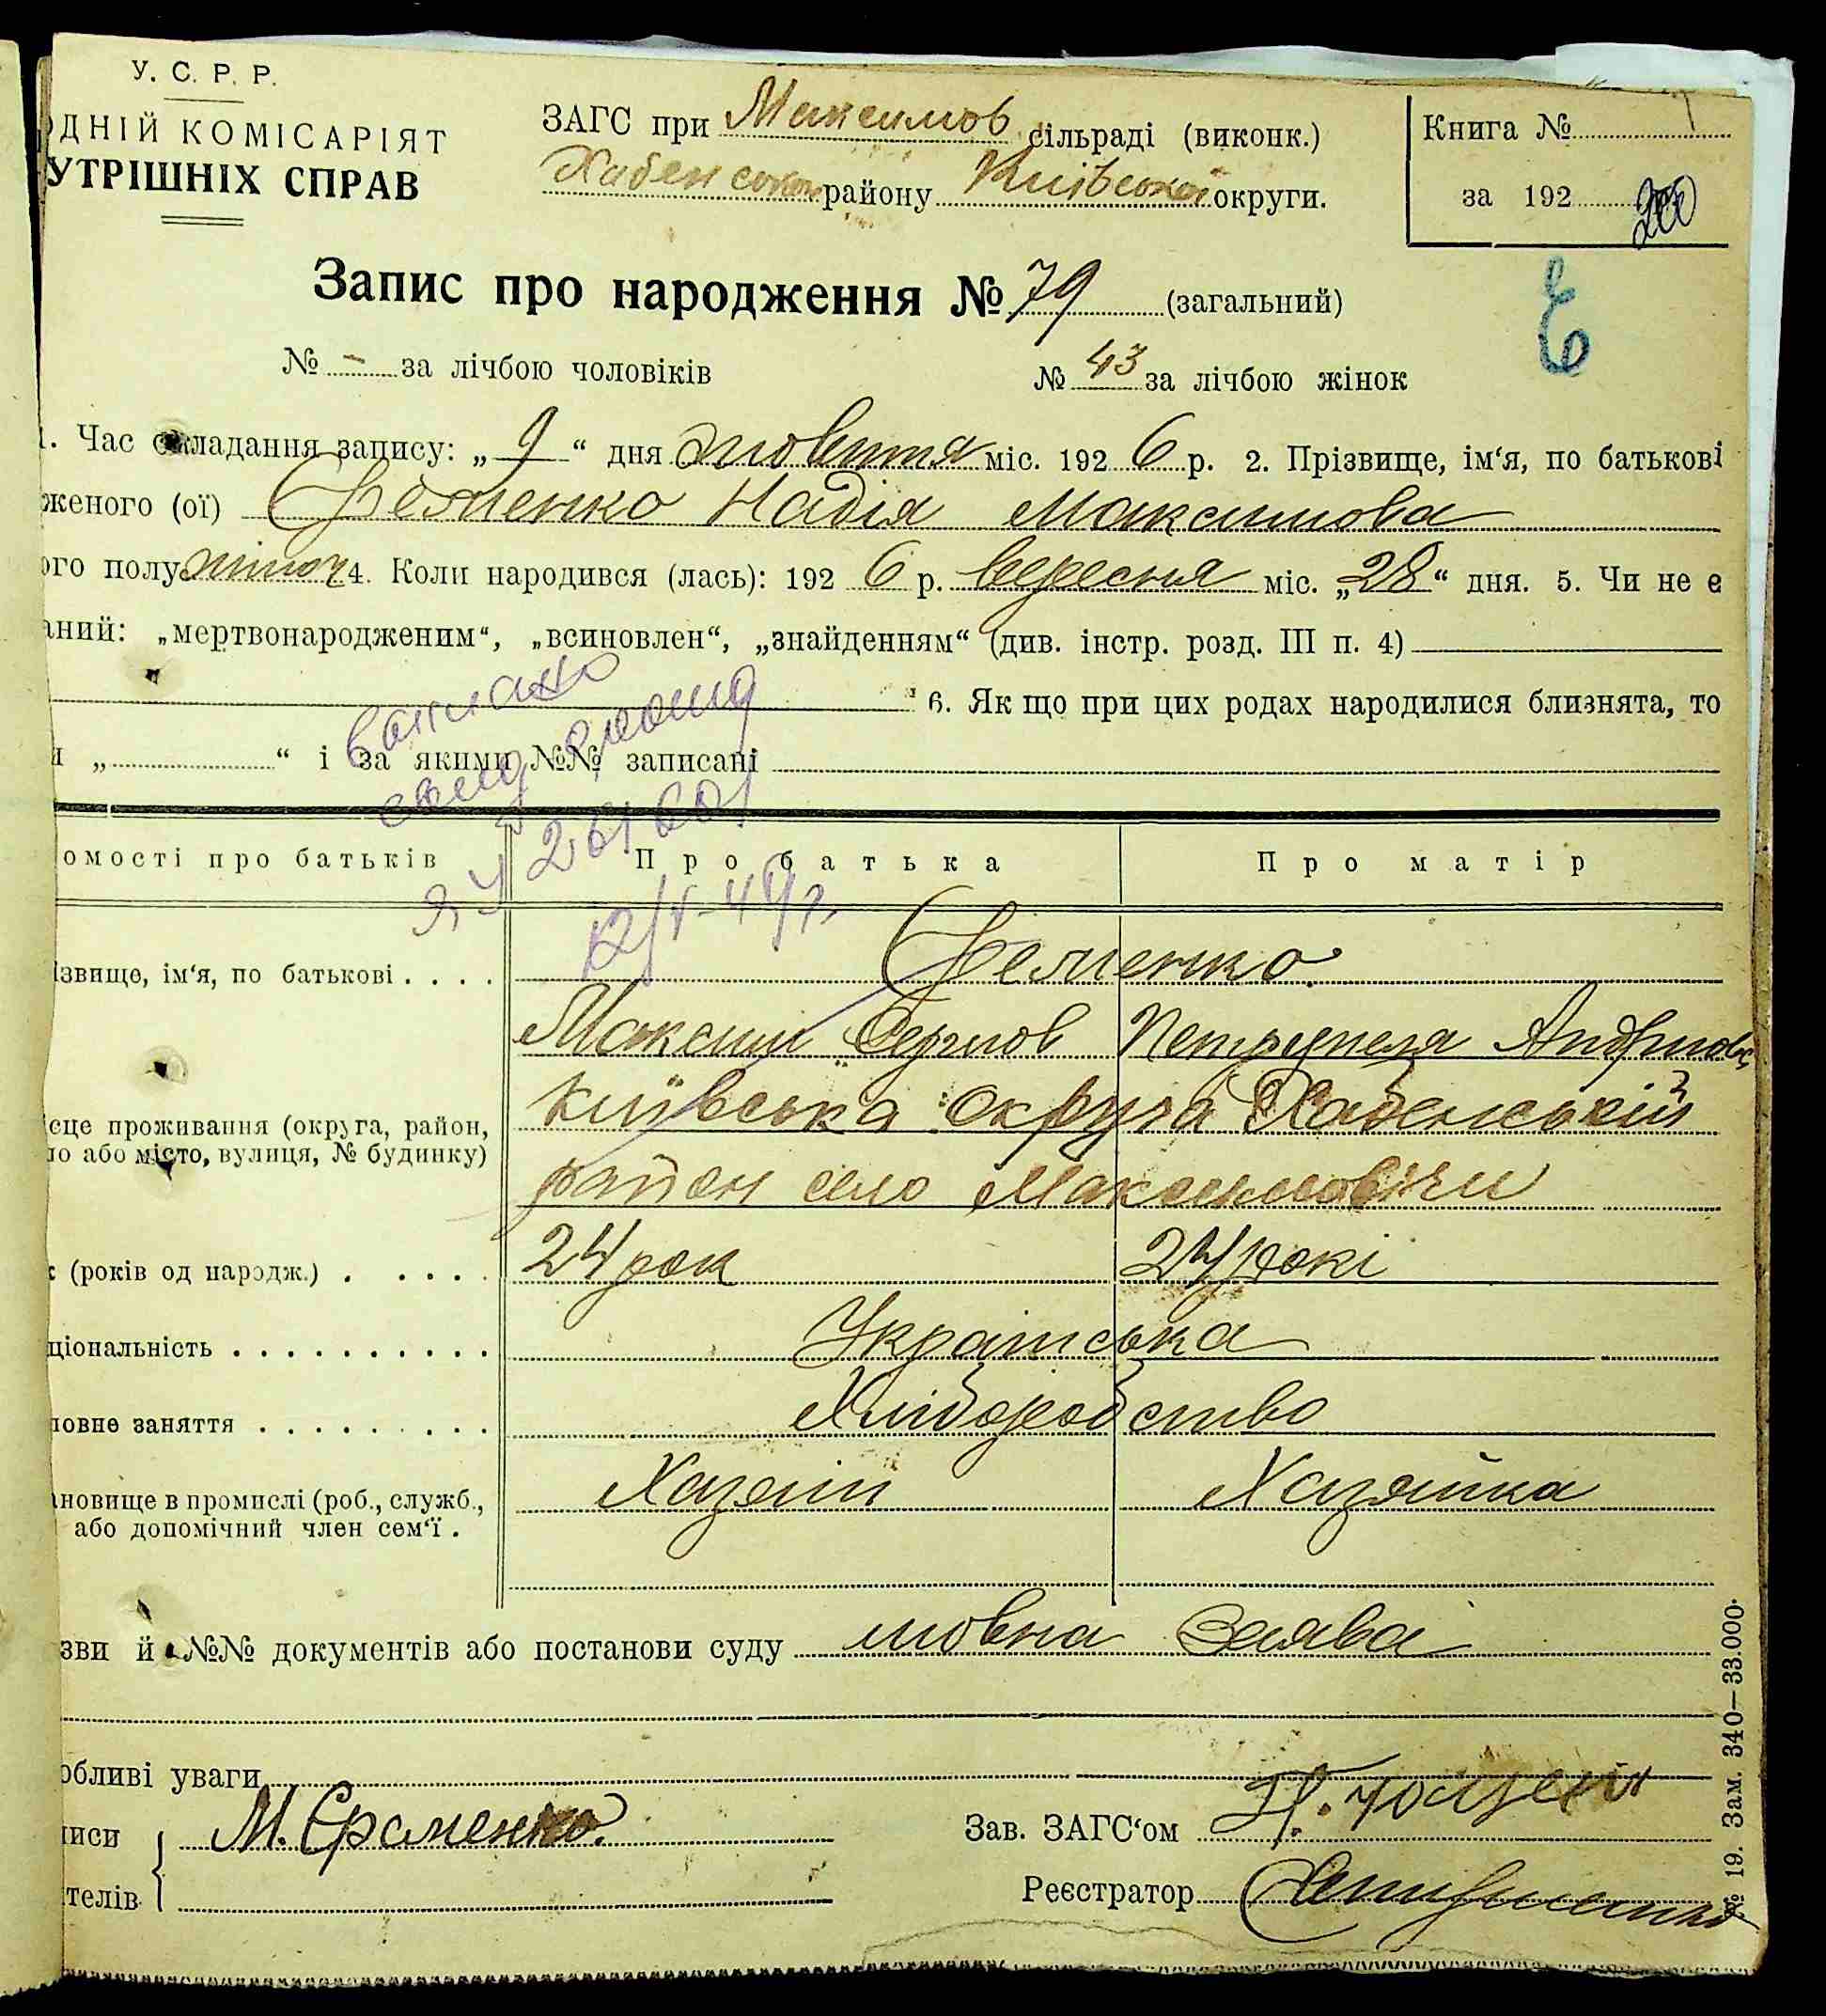 У. С. Р. Р.
ОДНІЙ КОМІСАРІЯТ
УТРІШНІХ СПРАВ
ЗАГС при Максимов сільраді (виконк.)
Хабенського району Київської округи.
Книга №
за 192
200
Запис про народження № 79 (загальний)
№ - за лічбою чоловіків № 43 за лічбою жінок
1. Час складання запису: „ 9 “ дня жовтня міс. 192 6 р. 2. Прізвище, ім'я, по батькові
женого (ої) Єременко Надія Максимова
ого полу жіноч 4. Коли народився (лась): 192 6 р. вересня міс. „ 28 “ дня. 5. Чи не є
аний: „мертвонародженим“, „всиновлен“, „знайденням“ (див. інстр. розд. III п. 4)
6. Як що при цих родах народилися близнята, то
и „ “ і за якими №№ записані
омості про батьків Про батька Про матір
ізвище, ім'я, по батькові . . . . Єременко
Максим Сергіов Петрунеля Андріıов
ісце проживання (округа, район, Київська округа Хабенській
ло або місто, вулиця, № будинку) район село Максимовичи
к (років од народж.) . . . . . 24 рок 24 рокі
ціональність . . . . . . . . . . . Українська
ловне заняття . . . . . . . . . Хліборобство
ановище в промислі (роб., служб., Хазяїн Хазяйка
або допомічний член сем'ї .
зви й №№ документів або постанови суду мовна Заява
обливі уваги
писи М. Єраменко.
телів
Зав. ЗАГС'ом
Реєстратор
№ 19. Зам. 340—33.000.